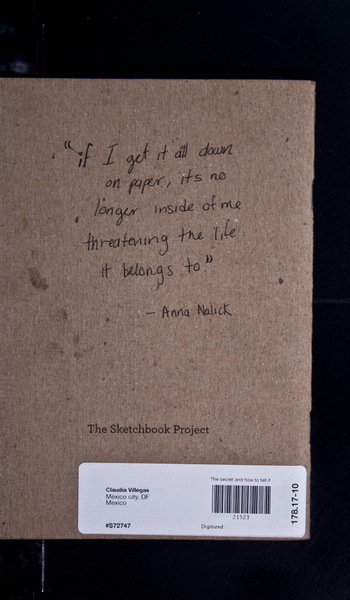 "if I get it all down
on paper, its no
longer inside of me
threatening the life
it belongs to."
- Anna Nalick
The Sketchbook Project
Claudia Villegas
México city, DF
Mexico
#S72747
The secret and how to tell it
21523
Digitized
178.17-10